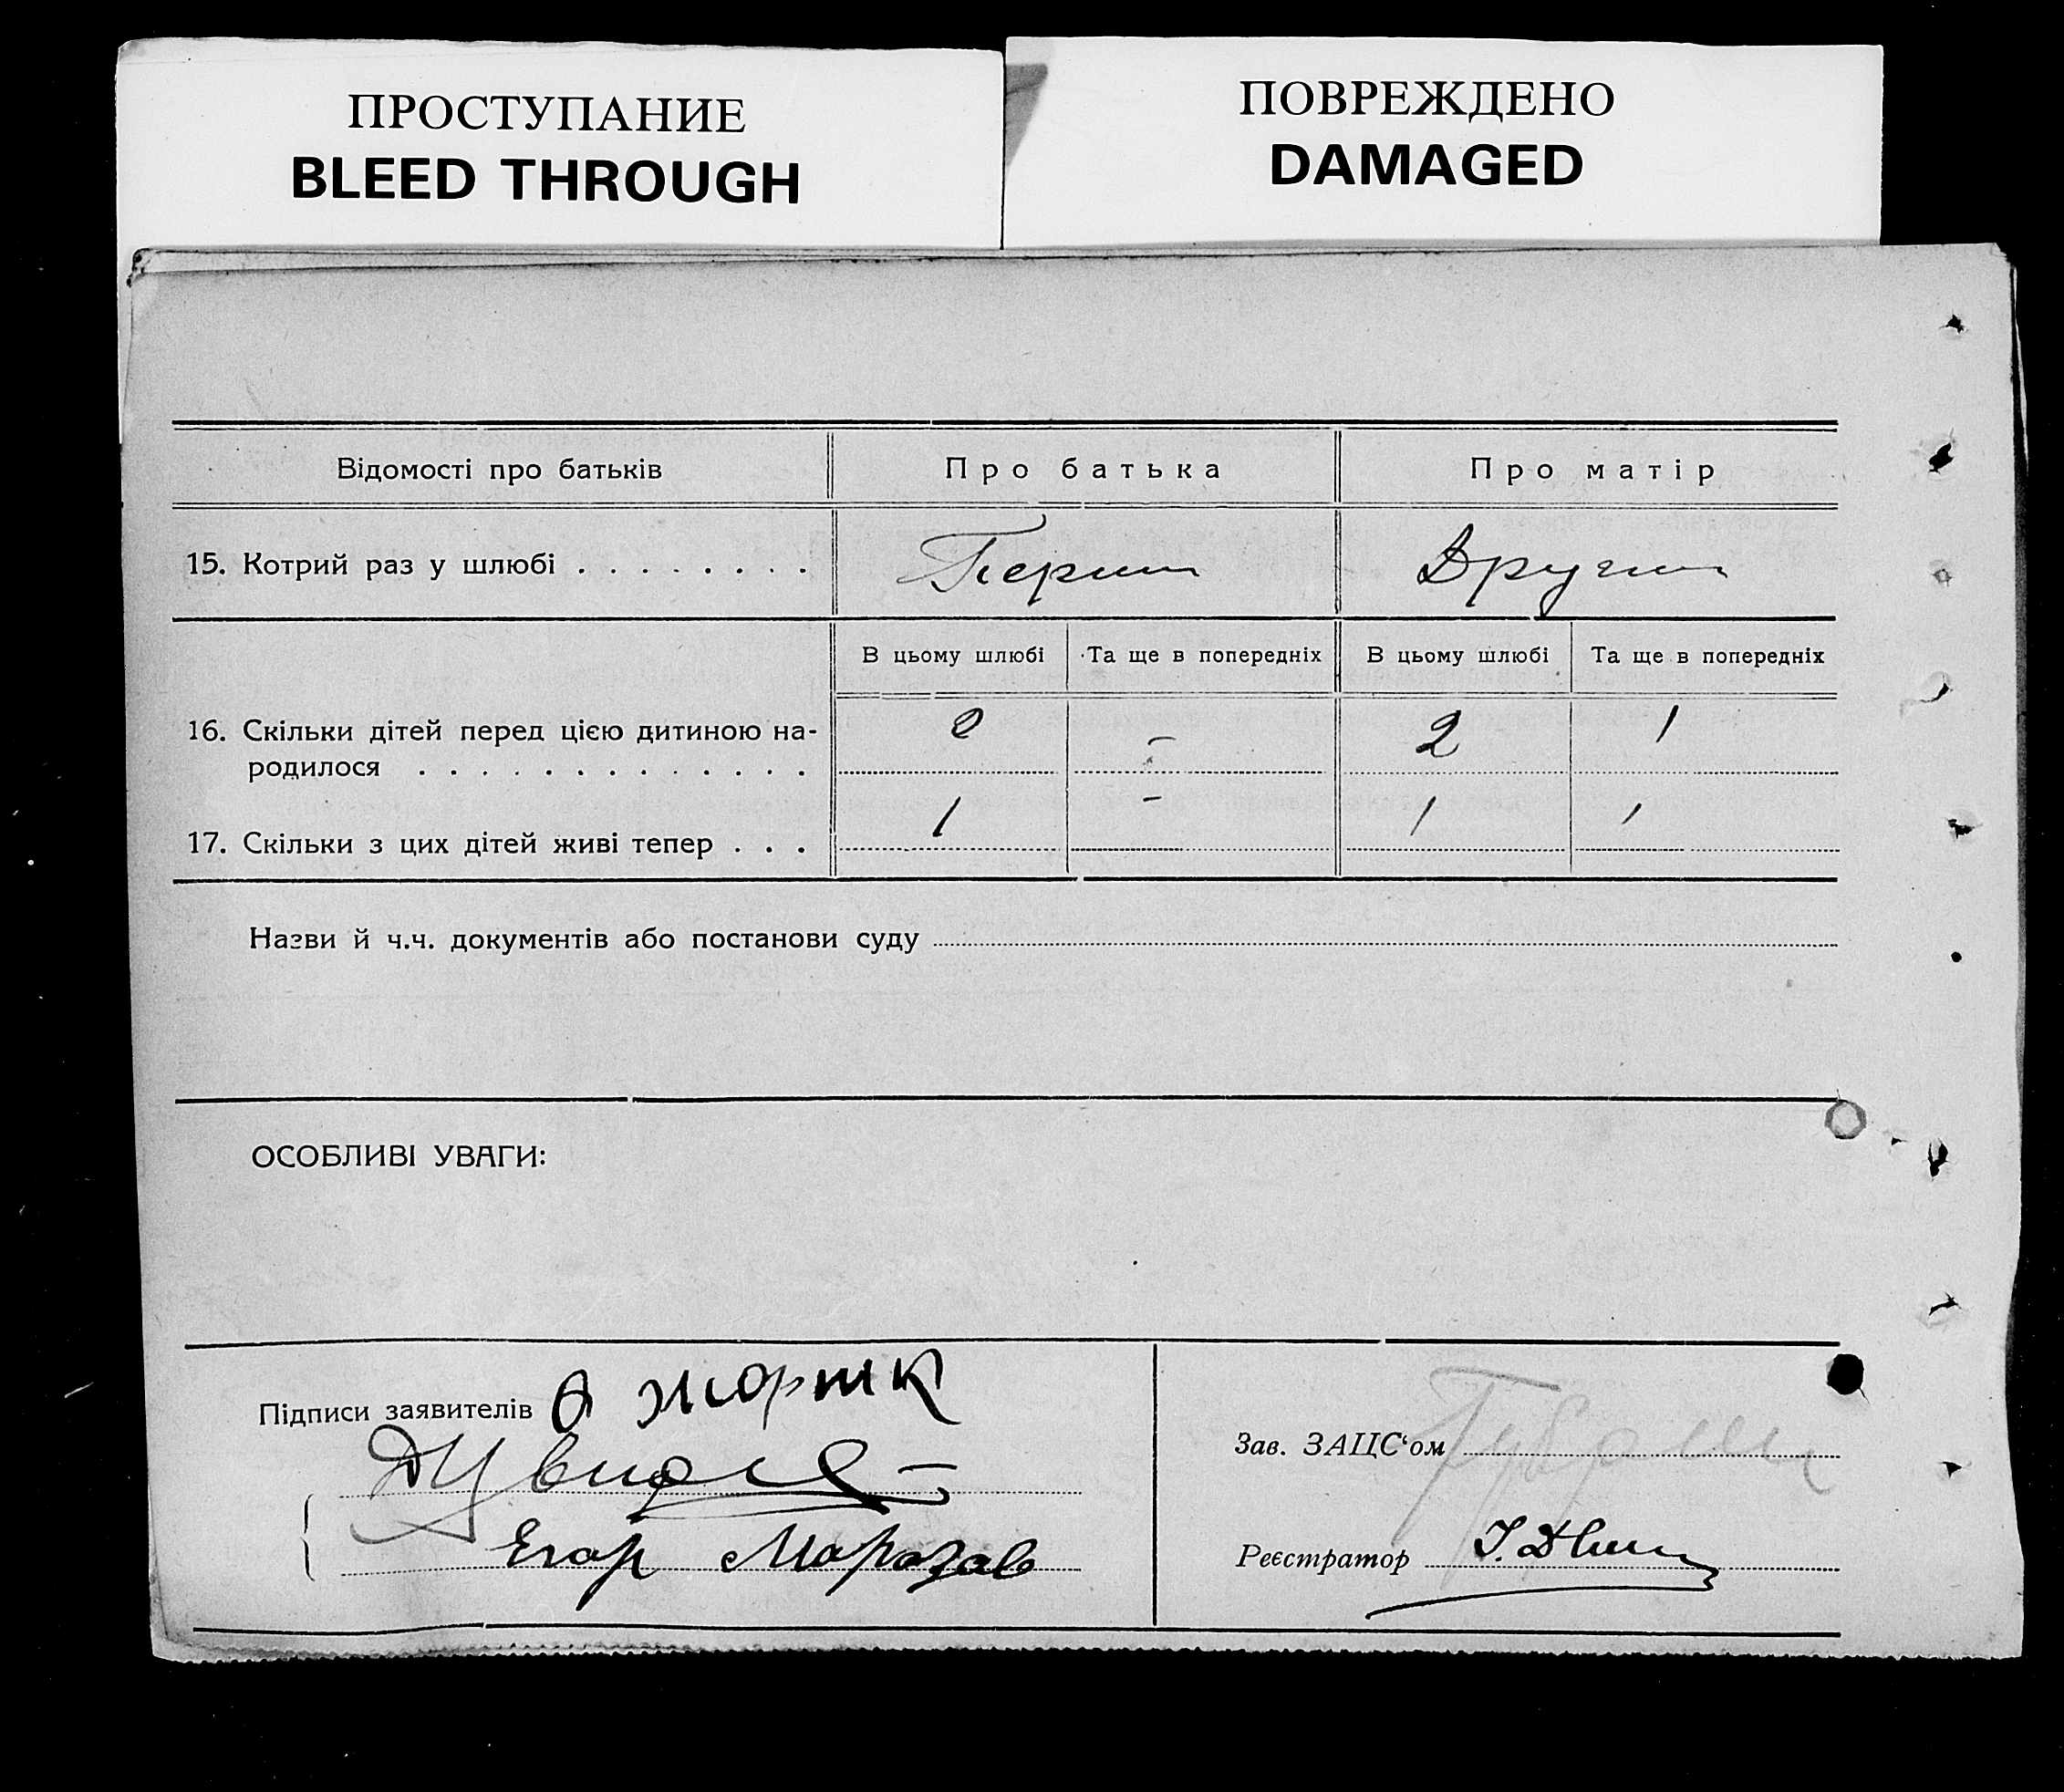 ПРОСТУПАНИЕ
BLEED THROUGH
ПОВРЕЖДЕНО
DAMAGED
Відомості про батьків Про батька Про матір
15. Котрий раз у шлюбі . . . . . . . . Перший Другий
В цьому шлюбі Та ще в попередніх В цьому шлюбі Та ще в попередніх
16. Скільки дітей перед цією дитиною на- 2 – 2 1
родилося . . . . . . . . . . . . . .
17. Скільки з цих дітей живі тепер . . . 1 – 1 1
Назви й ч.ч. документів або постанови суду
ОСОБЛИВІ УВАГИ:
Підписи заявителів
Зав. ЗАЦС‘ом
Егор Морозов
Реєстратор